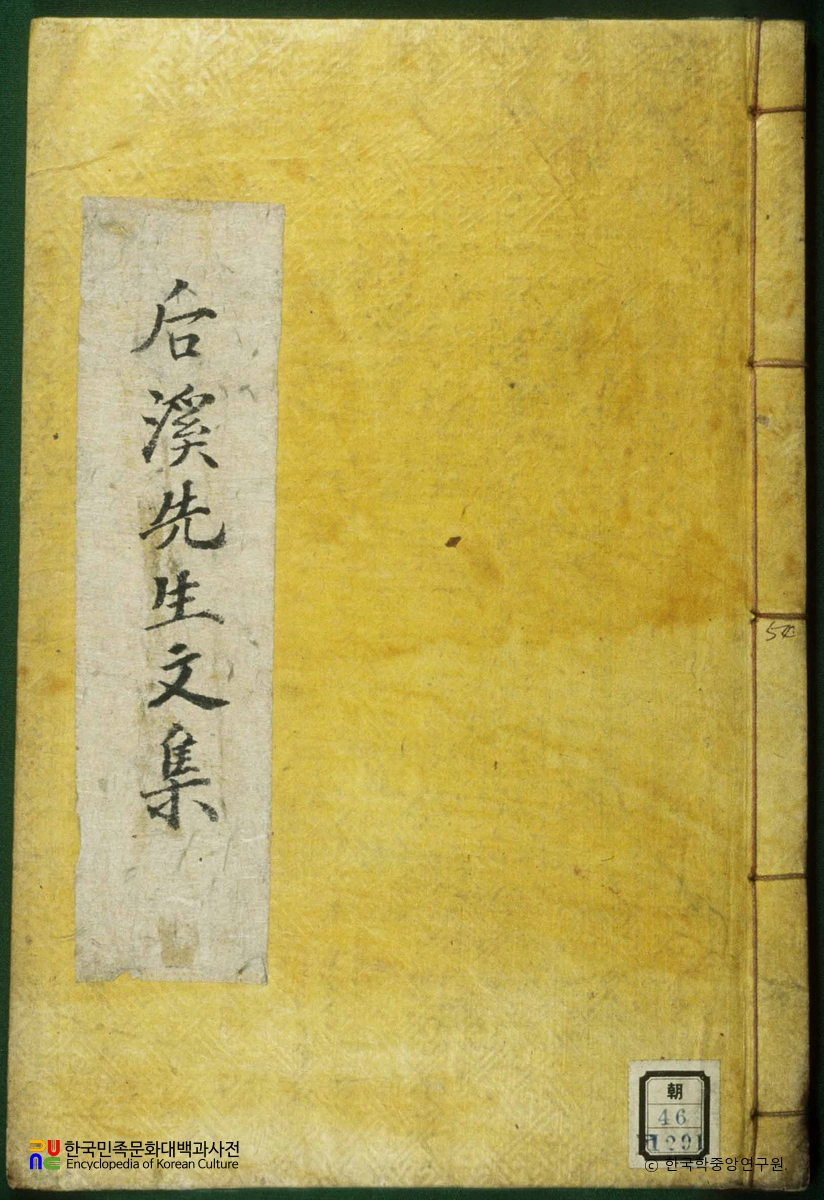 后溪先生文集
54
朝
46
한국민족문화대백과사전
Encyclopedia of Korean Culture
© 한국학중앙연구원.